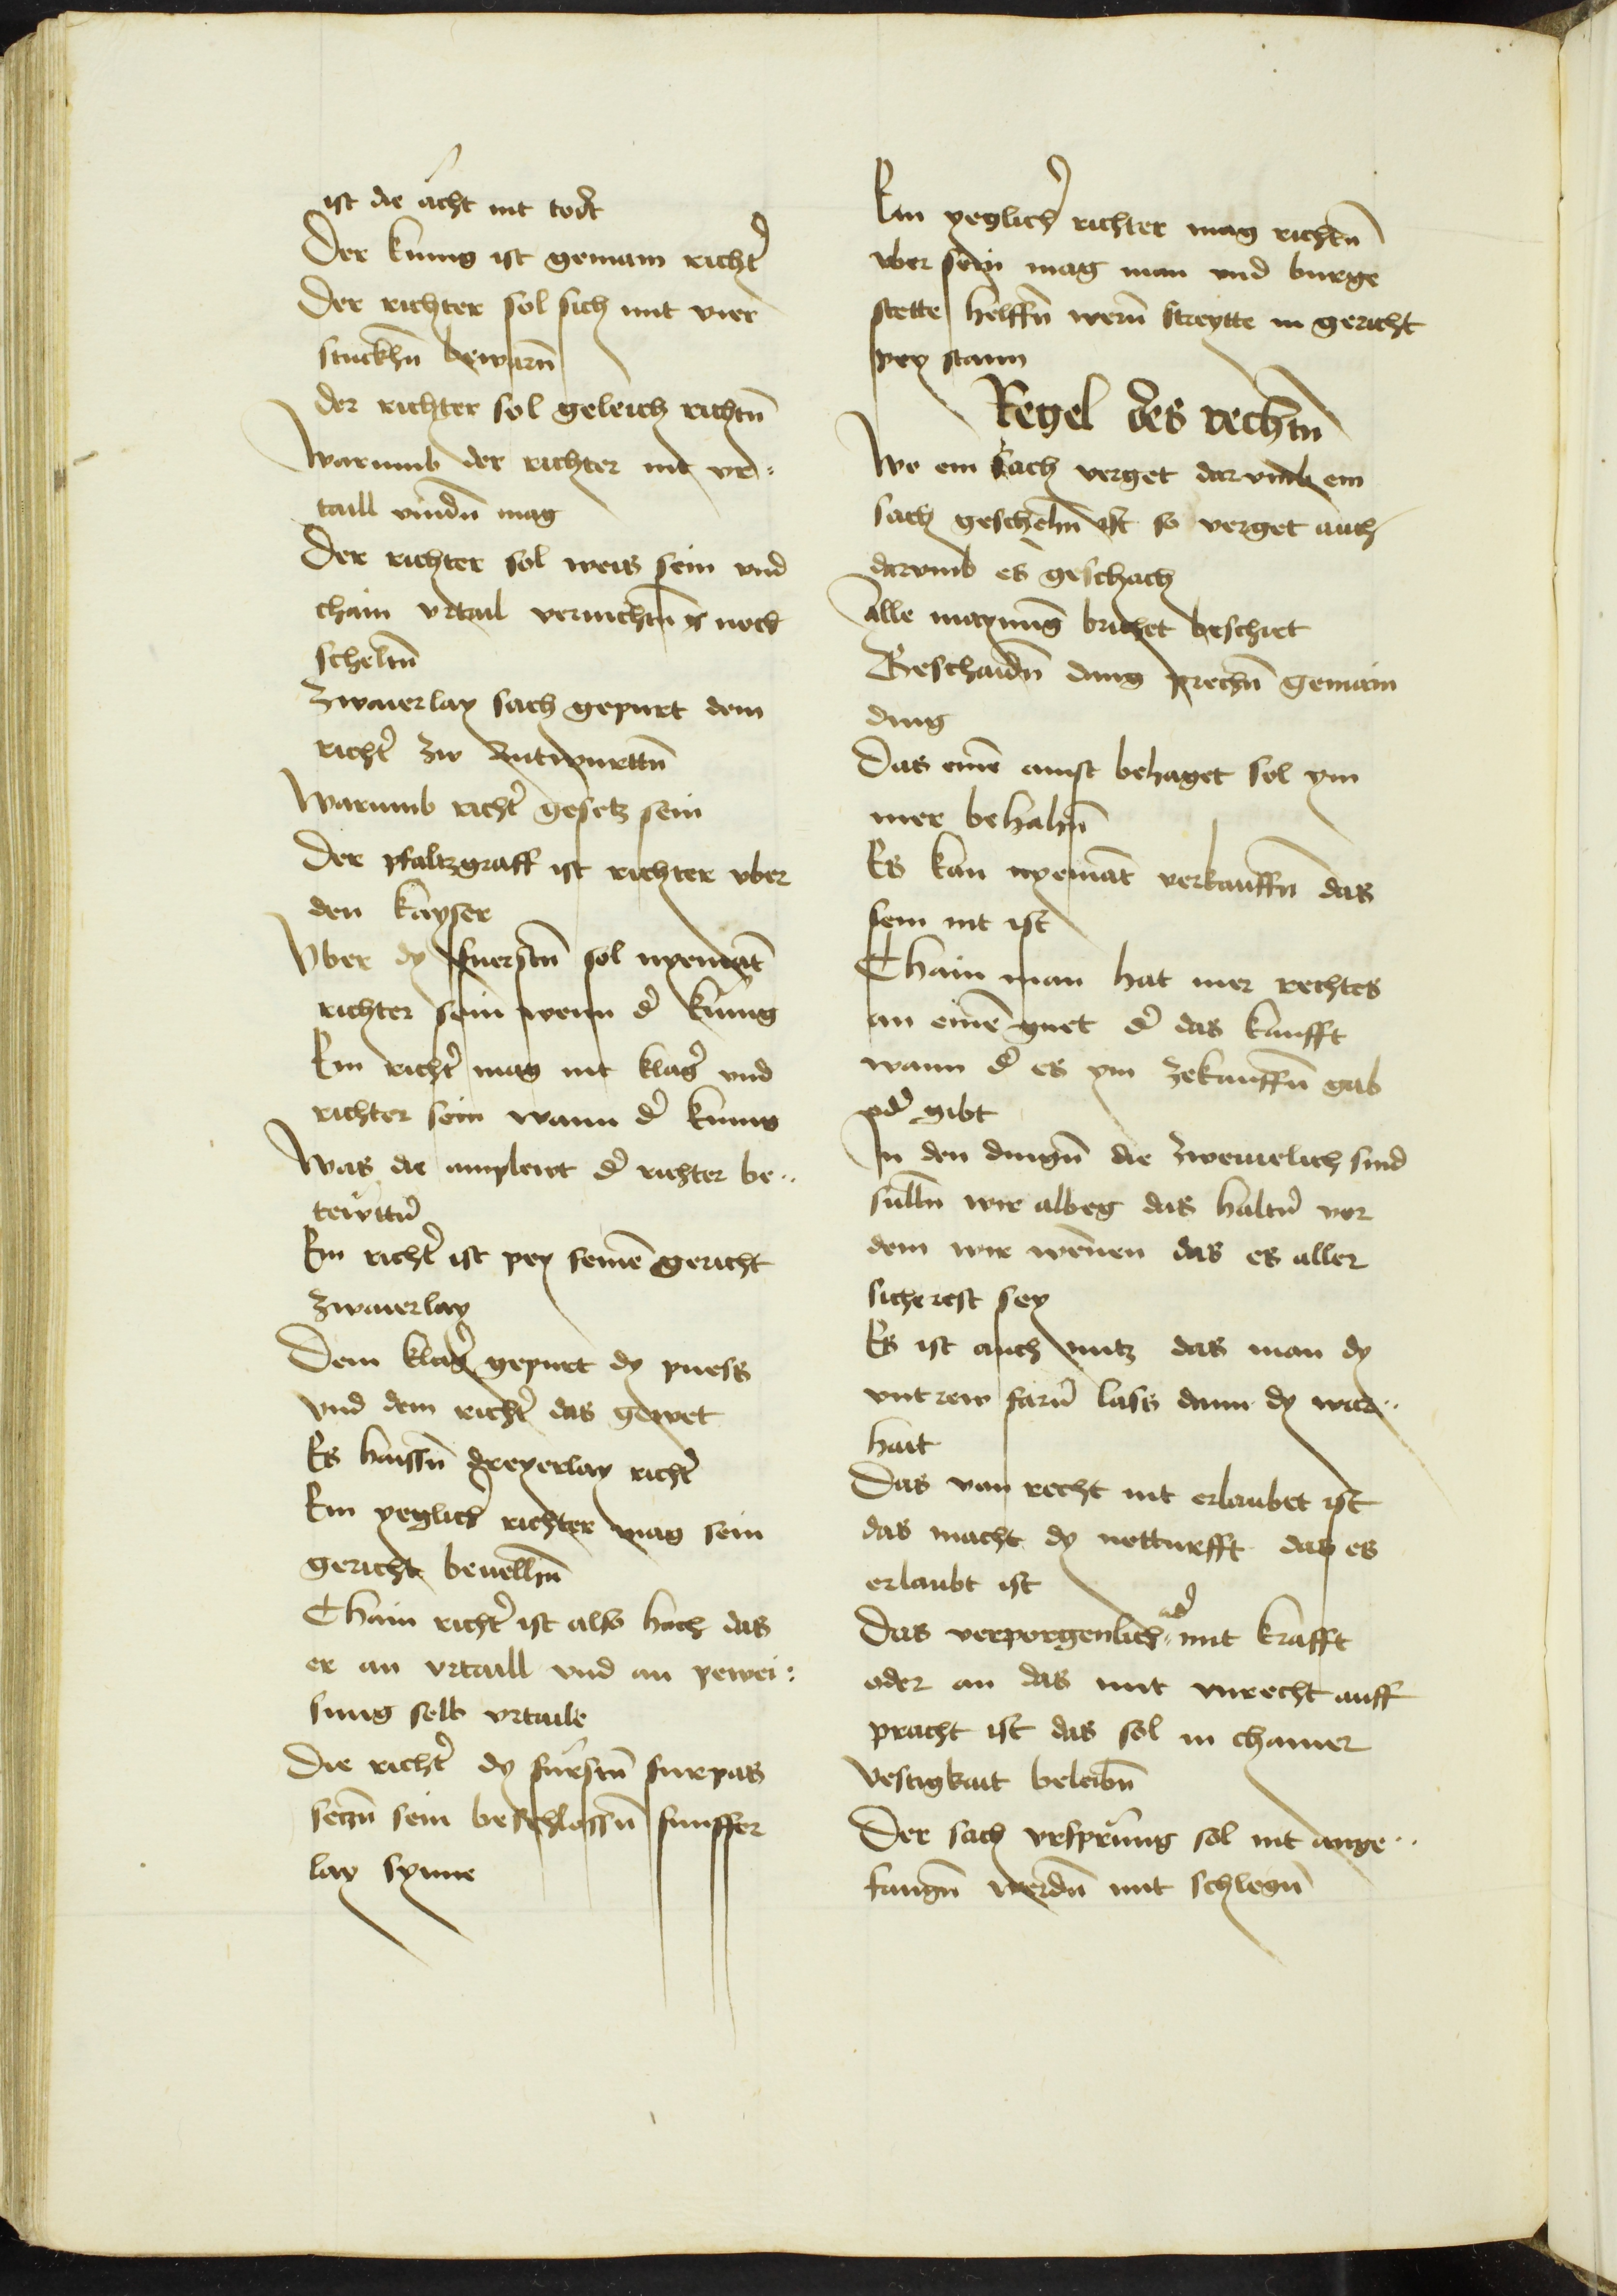 ist die ächt nit todt
Der kunig ist gemain richt̉
Der richter sol sich mit vier
stuckhn̄ bewarn̄
der richter sol geleich richtn̄
Warumb der richter nit vr=
taill vindn̄ mag
Der richter sol weis sein vnd
chain vrtail vernichtn̄ noch
scheltn̄
Zwaierlay sach gepurt dem
richt̉ zw antwurttn̄
Warumb richt̉ gesetz sein
Der pfaltzgraff ist richter vber
den kayser
Vber dy fuerstn̄ sol nyemāt
richter sein wenn d̉ kunig
Ein richt̉ mag nit klag̉ vnd
richter sein wann d̉ kunig
Was die ampleut d̉ richter be=
tewttn̄
Ein richt̉ ist pey seinē gericht
zwaierlay
Dem klag̉ gepurt dy puess
vnd dem richt̉ das gewet
Es haissn̄ dreyerlay richt̉
Ein yeglich̉ richter mag sein
gericht beuelhn̄
Chain richt̉ ist also hoch das
er an vrtaill vnd an pewei=
sung selb vrtaile
Die richt̉ dy fürstn̄ furpas
seczn̄ sein beschlossn̄ funffer
lay synne
Ein yeglich̉ richter mag richtn̄
vber sein mag man vnd burge
stette helffn̄ wern̄ streytte in gericht
pey stann
Regel des rechtn̄
Wo ein sach verget dar vmb ein
sach geschehn̄ ist so verget auch
darvmb es geschach
Alle maynung brichet beschiet
Beschaidn̄ ding prechn̄ gemain
ding
Das einē ainst behaget sol ym
mer behaln̄
Es kan nyemāt verkauffn̄ das
sein nit ist
Chain man hat mer rechtes
an einē guet d̉ das kaufft
wann d̉ es ym zekauffn̄ gab
od̉ gibt
In den dingn̄ die zweiuelich sind
sulln̄ wir albeg das haltn̄ vor
dem wir wenen das es aller
sicherest sey
Es ist auch nutz das man dy
vntrew farn̄ lass dann dy war=
hait
Das von recht nit erlaubet ist
das macht dy notturfft das es
erlaubt ist
Das verporgenlich od̉ mit krafft
oder an das mit vnrecht auff
pracht ist das sol in chainer
vestigkait beleibn̄
Der sach vrsprung sol nit ange=
fangn̄ werdn̄ mit schlegn̄